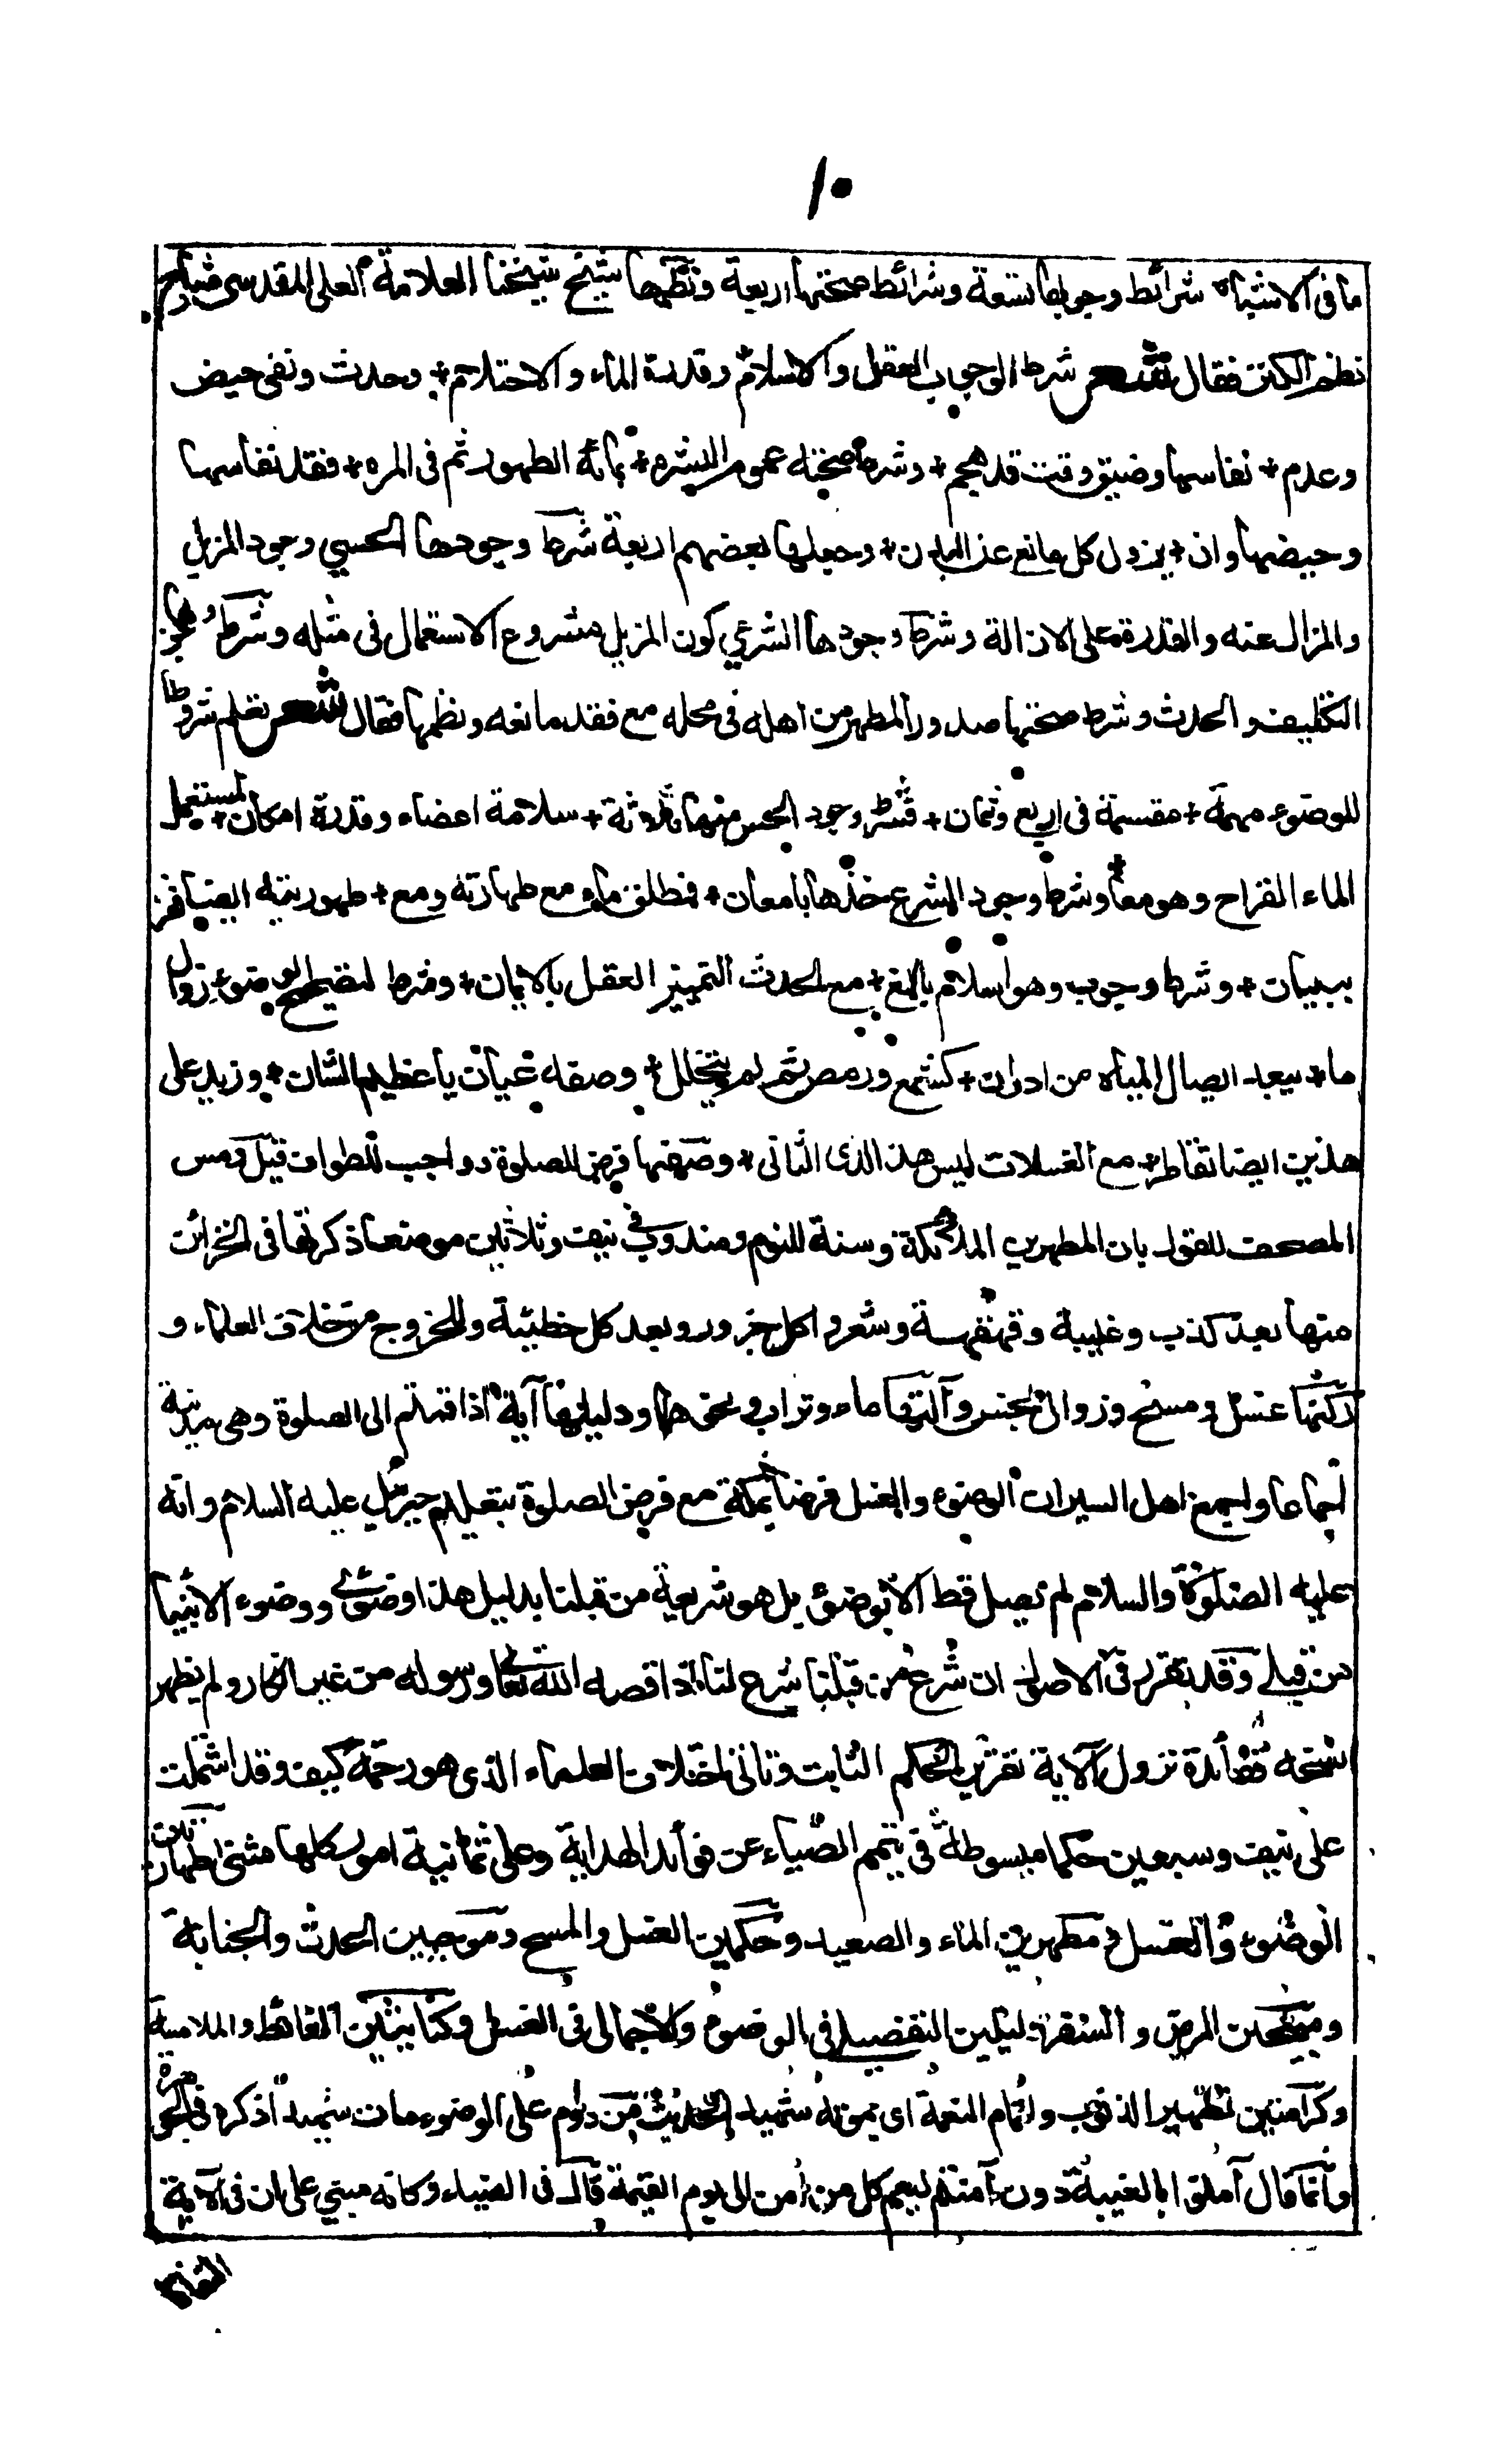 ١٠
ما في الاشباه شرائط وجوبها تسعة وشرائط صحتها اربعة ونظمها شيخ شيخنا العلامة العلي المقدسي شارح
نظم الكنز فقال شعر شرط الوجوب العقل والاسلام وقدرة الماء والاحتلام + وحدث ونفي حيض
وعدم + نفاسها وضيق وقت قد هجم + وشرط صحته عموم البشره + بمائه الطهور ثم في المره + فقد نفاسها
وحيضها وان + يزول كل مانع عن البدن + وجعلها بعضهم اربعة شرط وجودها الحسي وجود المزيل
والمزال عنه والقدرة على الازالة وشرط وجودها الشرعي كون المزيل مشروع الاستعمال في مثله وشرط وجوبها
التكليف والحدث وشرط صحتها صدور المطهر من اهله في محله مع فقد مانعه ونظمها فقال شعر تعلم شروطا
للوضوء مهمة + مقسمة في اربع وثمان + فشرط وجود الحس منها ثلاثة + سلامة اعضاء وقدرة امكان + لمستعمل
الماء القراح وهو معا + وشرط وجود الشرع خذها بامعان + فمطلق ماء مع طهارته ومع + طهوريته ايضا ففز
ببيان + وشرط وجوب وهو اسلام بالغ + مع الحدث التمييز العقل بالايمان + وشرط لتصحيح الوضوء زوال
ما + يبعد ايصال المياه من ادران + كشمع ورمص ثم لم يتخلل + وصفه غيان يا عظيم الشان + وزيد على
هذين ايضا تقاطر + مع الغسلات ليس هذا الذي الثاني + وصفتها فرض للصلوة وواجب للطواف قيل ومس
المصحف للقول بان المطهرين الملائكة وسنة للنوم ومندوب في نيف وثلاثين موضعا ذكرتها في الخزائن
منها بعد كذب وغيبة وقهقهة وشعر واكل جزور وبعد كل خطيئة وللخروج من خلاف العلماء و
ركنها غسل ومسح وزوال نجس وآلتها ماء وتراب ونحوهما ودليلها آية اذا قمتم الى الصلوة وهي مدنية
اجماعا واجمع اهل السير ان الوضوء والغسل فرضا بمكة مع فرض الصلوة بتعليم جبريل عليه السلام وانه
عليه الصلوة والسلام لم يصل قط الا بوضوء بل هو شريعة من قبلنا بدليل هذا وضوئي ووضوء الانبياء
من قبلي وقد تقرر في الاصول ان شرع من قبلنا شرع لنا اذا قصه الله تعالى ورسوله من غير انكار ولم يظهر
نسخه ففائدة نزول الآية تقرير الحكم الثابت وتاتي اختلاف العلماء الذي هو رحمة كيف وقد اشتملت
على نيف وسبعين حكما مبسوطة في تيمم الضياء عن فوائد الهداية وعلى ثمانية امور كلها مثنى طهارتان
الوضوء والغسل ومطهرين الماء والصعيد وحكمين الغسل والمسح وموجبين الحدث والجنابة
ومبيحين المرض والسفر ودليلين التفصيلي في الوضوء والاجمالي في الغسل وكنايتين الغائط والملامسة
وكرامتين تطهير الذنوب واتمام النعمة اي بموته شهيدا لحديث من داوم على الوضوء مات شهيدا ذكره في الجوهرة
وانما قال آمنوا بالغيبة دون آمنتم ليعم كل من آمن الى يوم القيمة قاله في الضياء وكانه مبني على ان في الآية